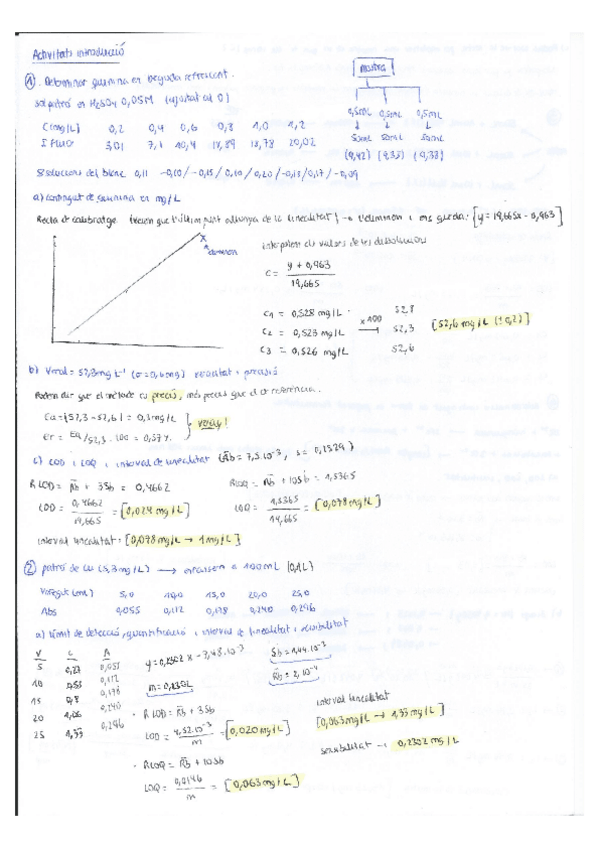 Activitats introducció
① . Determinar quinina en beguda refrescant.
mostra
sol patró en H2SO4 0,05M (ajustat al 0)
0,5mL 0,5mL 0,5mL
C (mg/L) 0,2 0,4 0,6 0,8 1,0 1,2
50mL 50mL 50mL
I Fluo 3,01 7,1 10,4 14,89 18,78 20,02
(9,42) (9,33) (9,38)
8 solucions del blanc 0,11 -0,10 / -0,15 / 0,10 / 0,20 / -0,13 / 0,17 / -0,09
a) contingut de quinina en mg/L
Recta de calibratge. Veiem que l'últim punt s'allunya de la linealitat → l'eliminem i ens queda: [y = 19,665x - 0,963]
interpolem els valors de les dissolucions
C = y + 0,963 / 19,665
C1 = 0,528 mg/L 52,8
C2 = 0,523 mg/L x100 → 52,3 [52,6 mg/L (±0,2)]
C3 = 0,526 mg/L 52,6
b) Vreal = 52,3 mg L-1 (σ = 0,6 mg) exactitud i precisió
Podem dir que el mètode és precís, més precís que el de referència.
Ea = |52,3 - 52,6| = 0,3 mg/L
Er = Ea/52,3 · 100 = 0,57%
c) LOD i LOQ i interval de linealitat (Rb = 7,5·10-3, s = 0,1529)
R LOD = Rb + 3Sb = 0,4662 RLOQ = Rb + 10Sb = 1,5365
LOD = 0,4662 / 19,665 = [0,024 mg/L] LOQ = 1,5365 / 19,665 = [0,078 mg/L]
interval linealitat: [0,078 mg/L → 1 mg/L]
② patró de Cu (5,3 mg/L) → enrasem a 100mL (0,1L)
Vafegit (mL) 5,0 10,0 15,0 20,0 25,0
Abs 0,055 0,112 0,178 0,240 0,296
a) límit de detecció, quantificació i interval de linealitat i sensibilitat
V C A
5 0,27 0,055
10 0,53 0,112
15 0,8 0,178
20 1,06 0,240
25 1,33 0,296
y = 0,2302 x - 7,48·10-3
m = 0,2302
Sb = 1,44·10-3
Rb = 2·10-4
· R LOD = Rb + 3Sb
LOD = 4,52·10-3 / m = [0,020 mg/L]
· RLOQ = Rb + 10Sb
LOQ = 0,0146 / m = [0,063 mg/L]
interval linealitat
[0,063 mg/L → 1,33 mg/L]
sensibilitat → 0,2302 mg/L